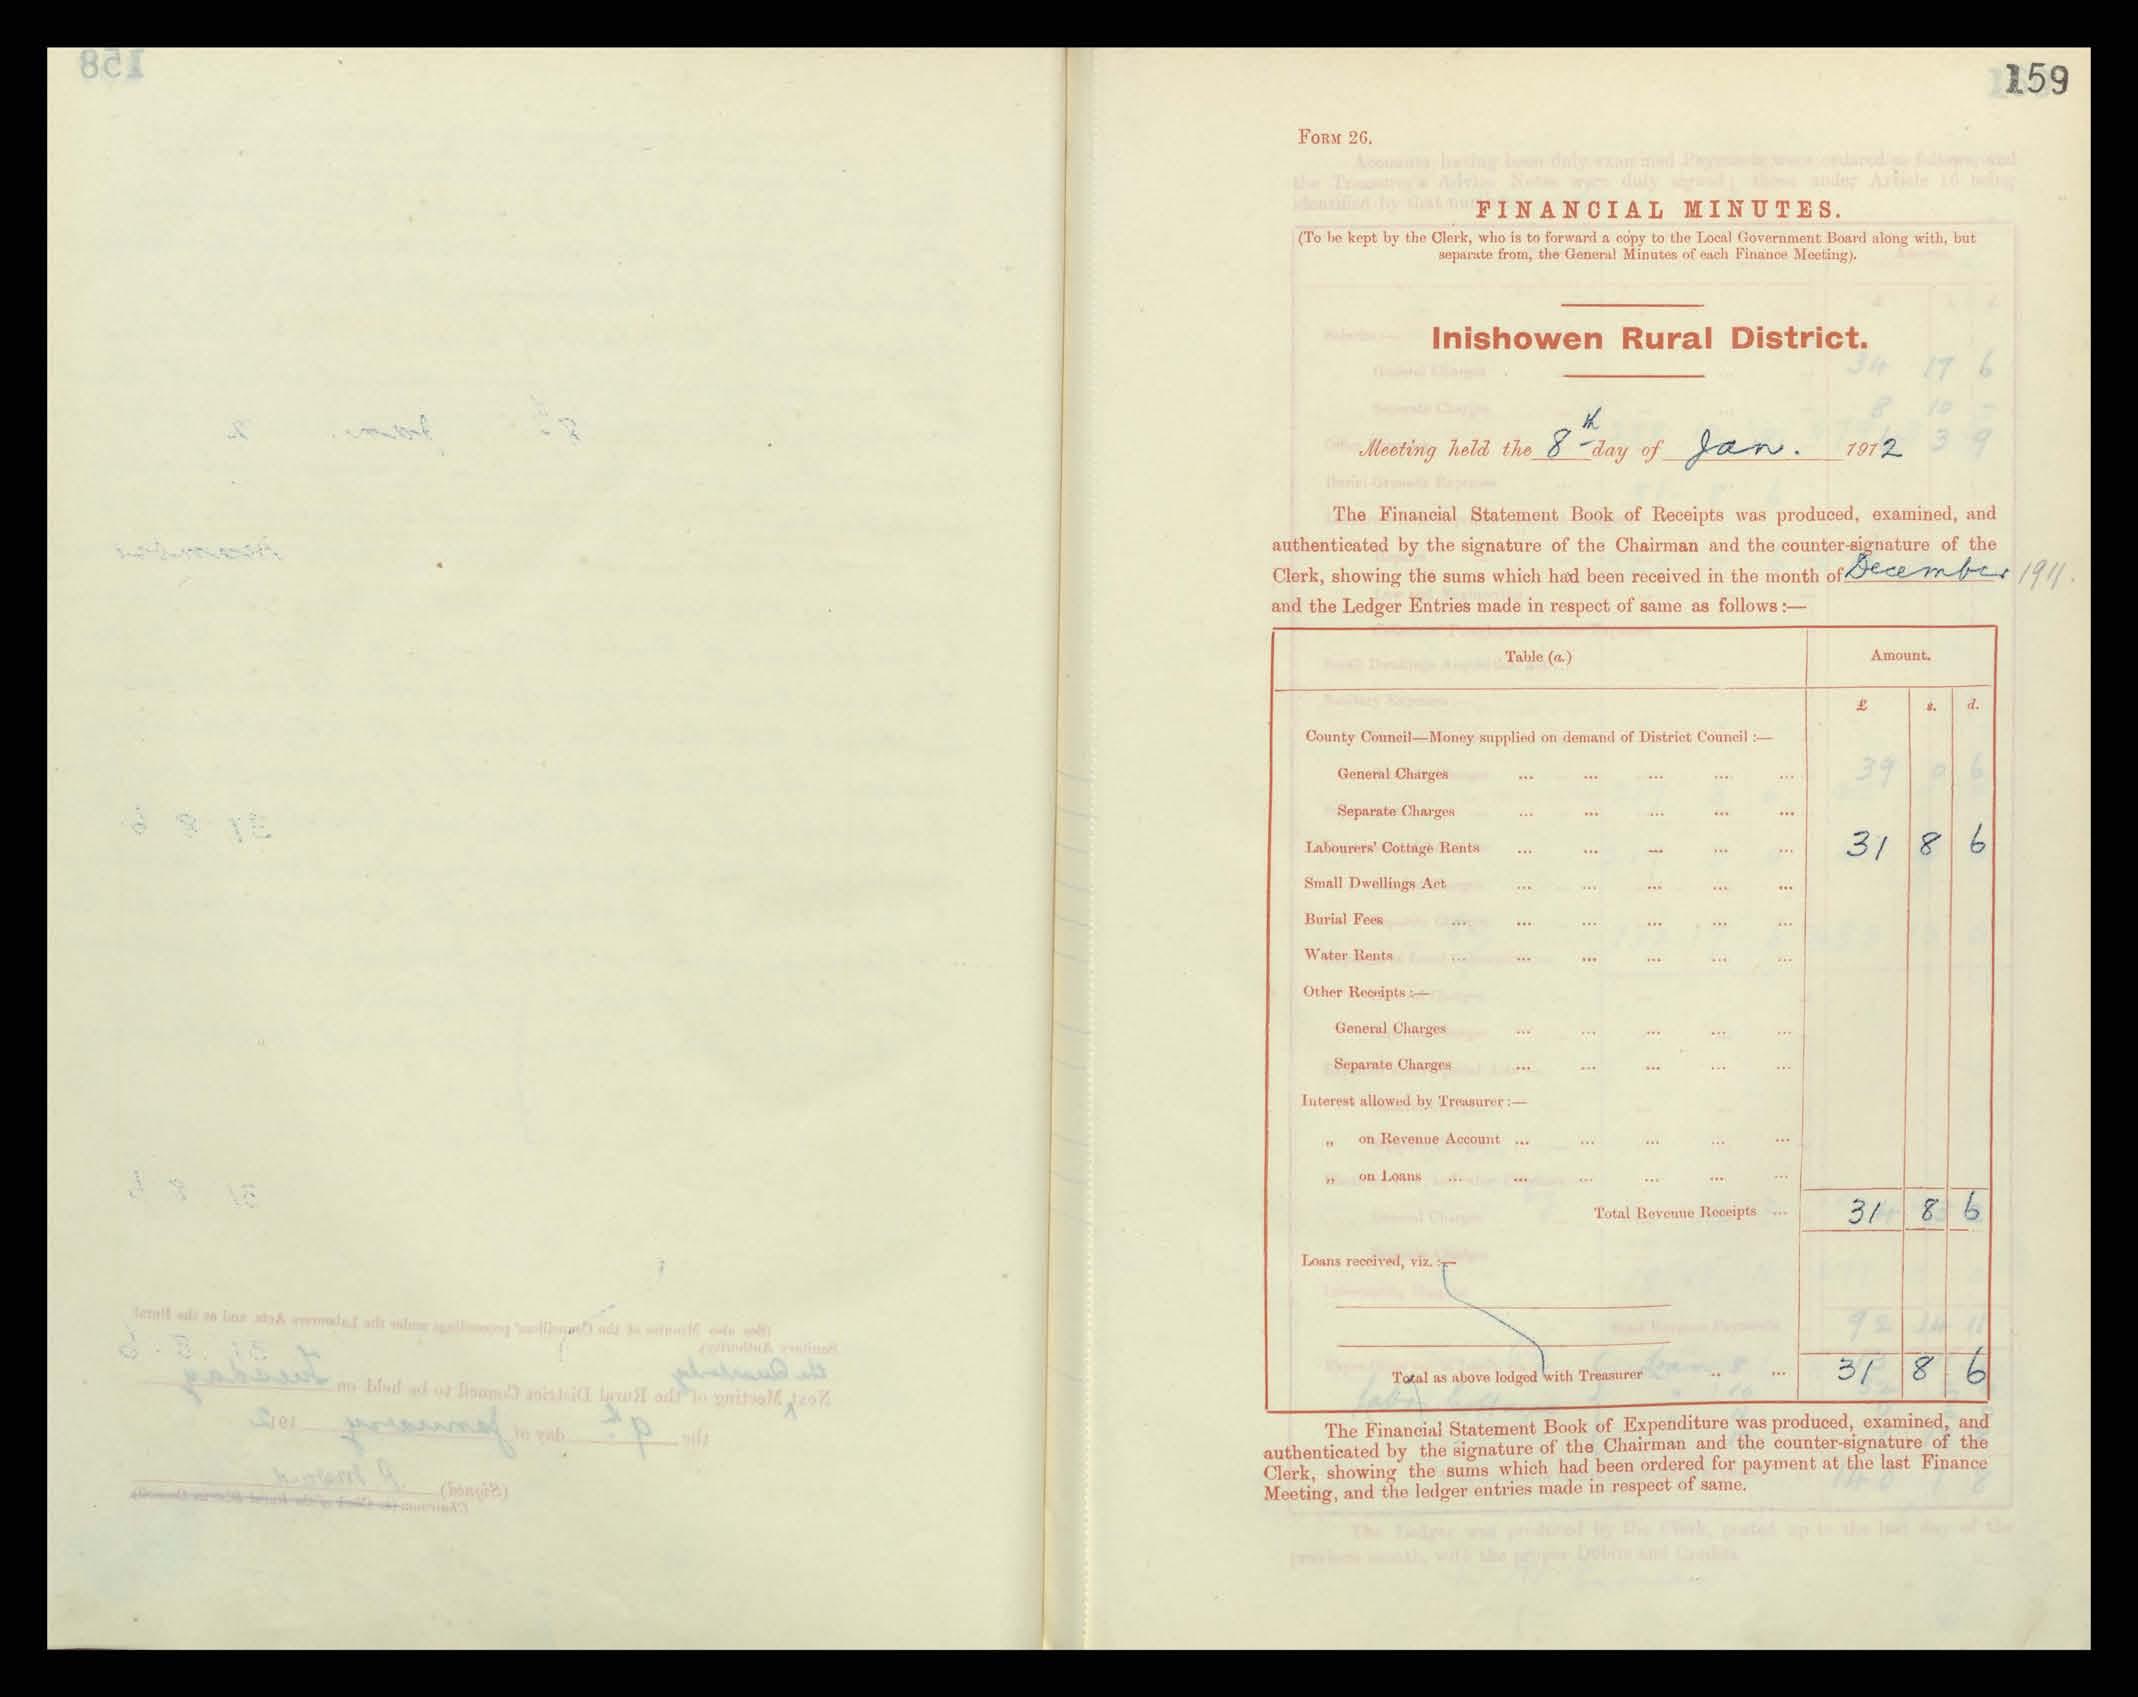 159
FORM 26.
FINANCIAL MINUTES.
(To be kept by the Clerk, who is to forward a copy to the Local Government Board along with, but
separate from, the General Minutes of each Finance Meeting).
Inishowen Rural District.
Meeting held the 8th day of Jan. 1912
The Financial Statement Book of Receipts was produced, examined, and
authenticated by the signature of the Chairman and the counter-signature of the
Clerk, showing the sums which had been received in the month of December 1911.
and the Ledger Entries made in respect of same as follows :—
Table (a.) Amount.
£ s. d.
County Council—Money supplied on demand of District Council :—
General Charges ... ... ... ... ...
Separate Charges ... ... ... ... ...
Labourers' Cottage Rents ... ... ... ... ... 31 8 6
Small Dwellings Act ... ... ... ... ...
Burial Fees ... ... ... ... ... ...
Water Rents ... ... ... ... ... ...
Other Receipts :—
General Charges ... ... ... ... ...
Separate Charges ... ... ... ... ...
Interest allowed by Treasurer :—
„ on Revenue Account ... ... ... ... ...
„ on Loans ... ... ... ... ... ...
Total Revenue Receipts ... 31 8 6
Loans received, viz. :—
Total as above lodged with Treasurer .. ... 31 8 6
The Financial Statement Book of Expenditure was produced, examined, and
authenticated by the signature of the Chairman and the counter-signature of the
Clerk, showing the sums which had been ordered for payment at the last Finance
Meeting, and the ledger entries made in respect of same.